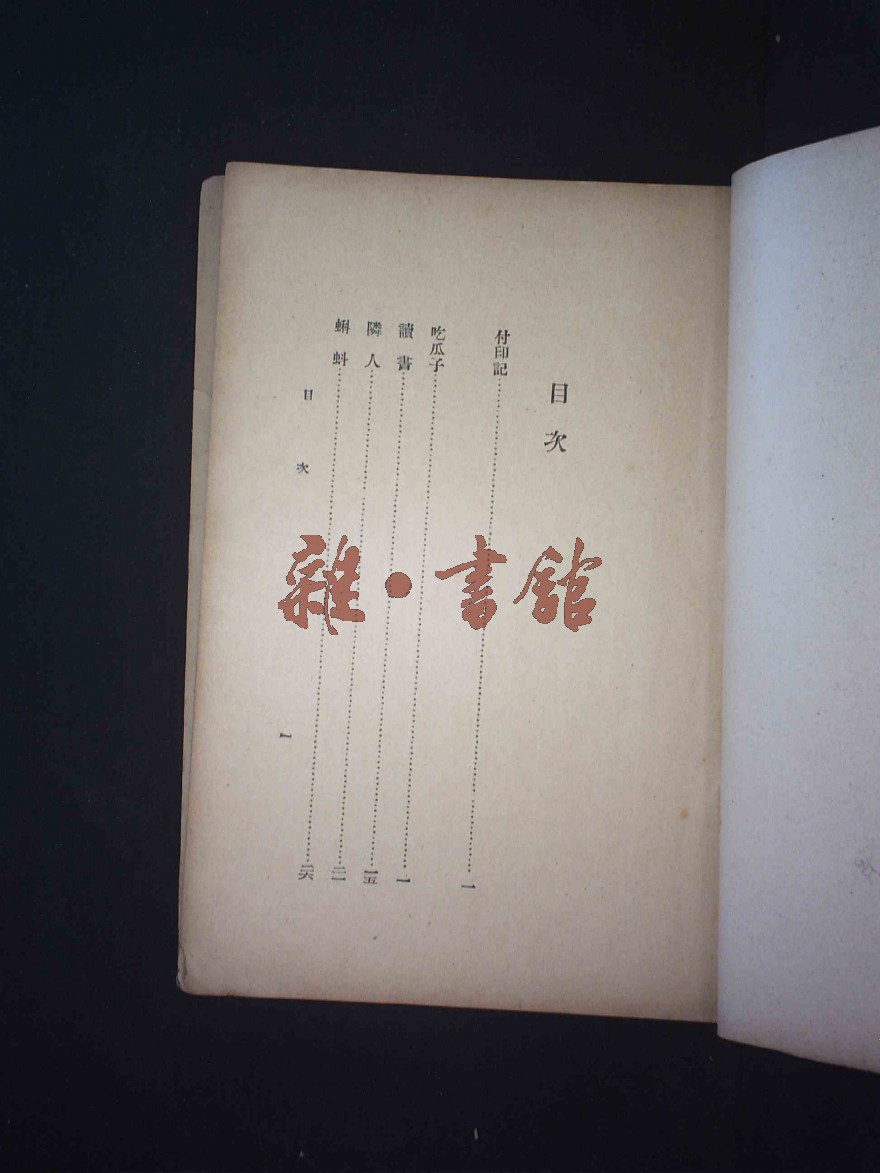 目次
付印記……一
吃瓜子……一
讀書……一五
隣人……二一
蝌蚪……二六
目次
一
雜・書館